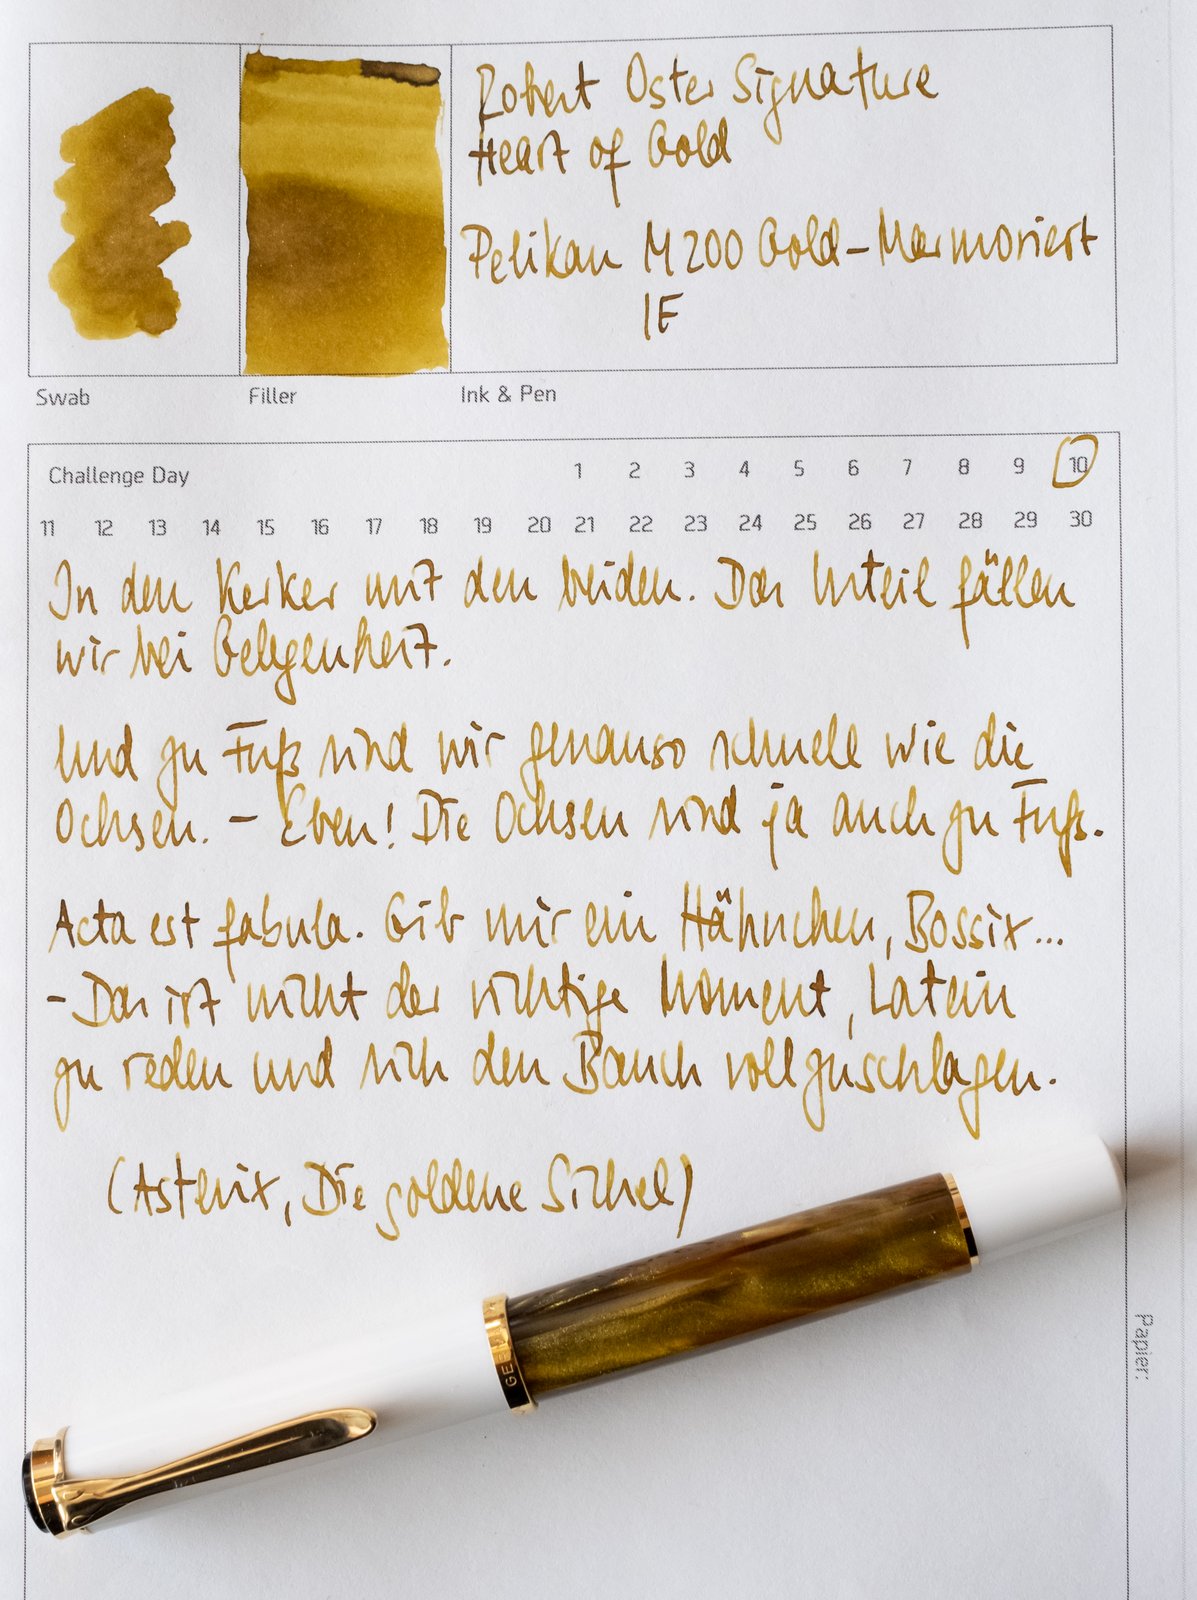 Robert Oster Signature
Heart of Gold
Pelikan M200 Gold-Marmoriert
IF
Swab
Filler
Ink & Pen
Challenge Day 1 2 3 4 5 6 7 8 9 10
11 12 13 14 15 16 17 18 19 20 21 22 23 24 25 26 27 28 29 30
In den Kerker mit den beiden. Das Urteil fällen
wir bei Gelegenheit.
Und zu Fuß sind wir genauso schnell wie die
Ochsen. - Eben! Die Ochsen sind ja auch zu Fuß.
Acta est fabula. Gib mir ein Hähnchen, Bossix...
- Das ist nicht der richtige Moment, Latein
zu reden und sich den Bauch vollzuschlagen.
(Asterix, Die goldene Sichel)
Papier: